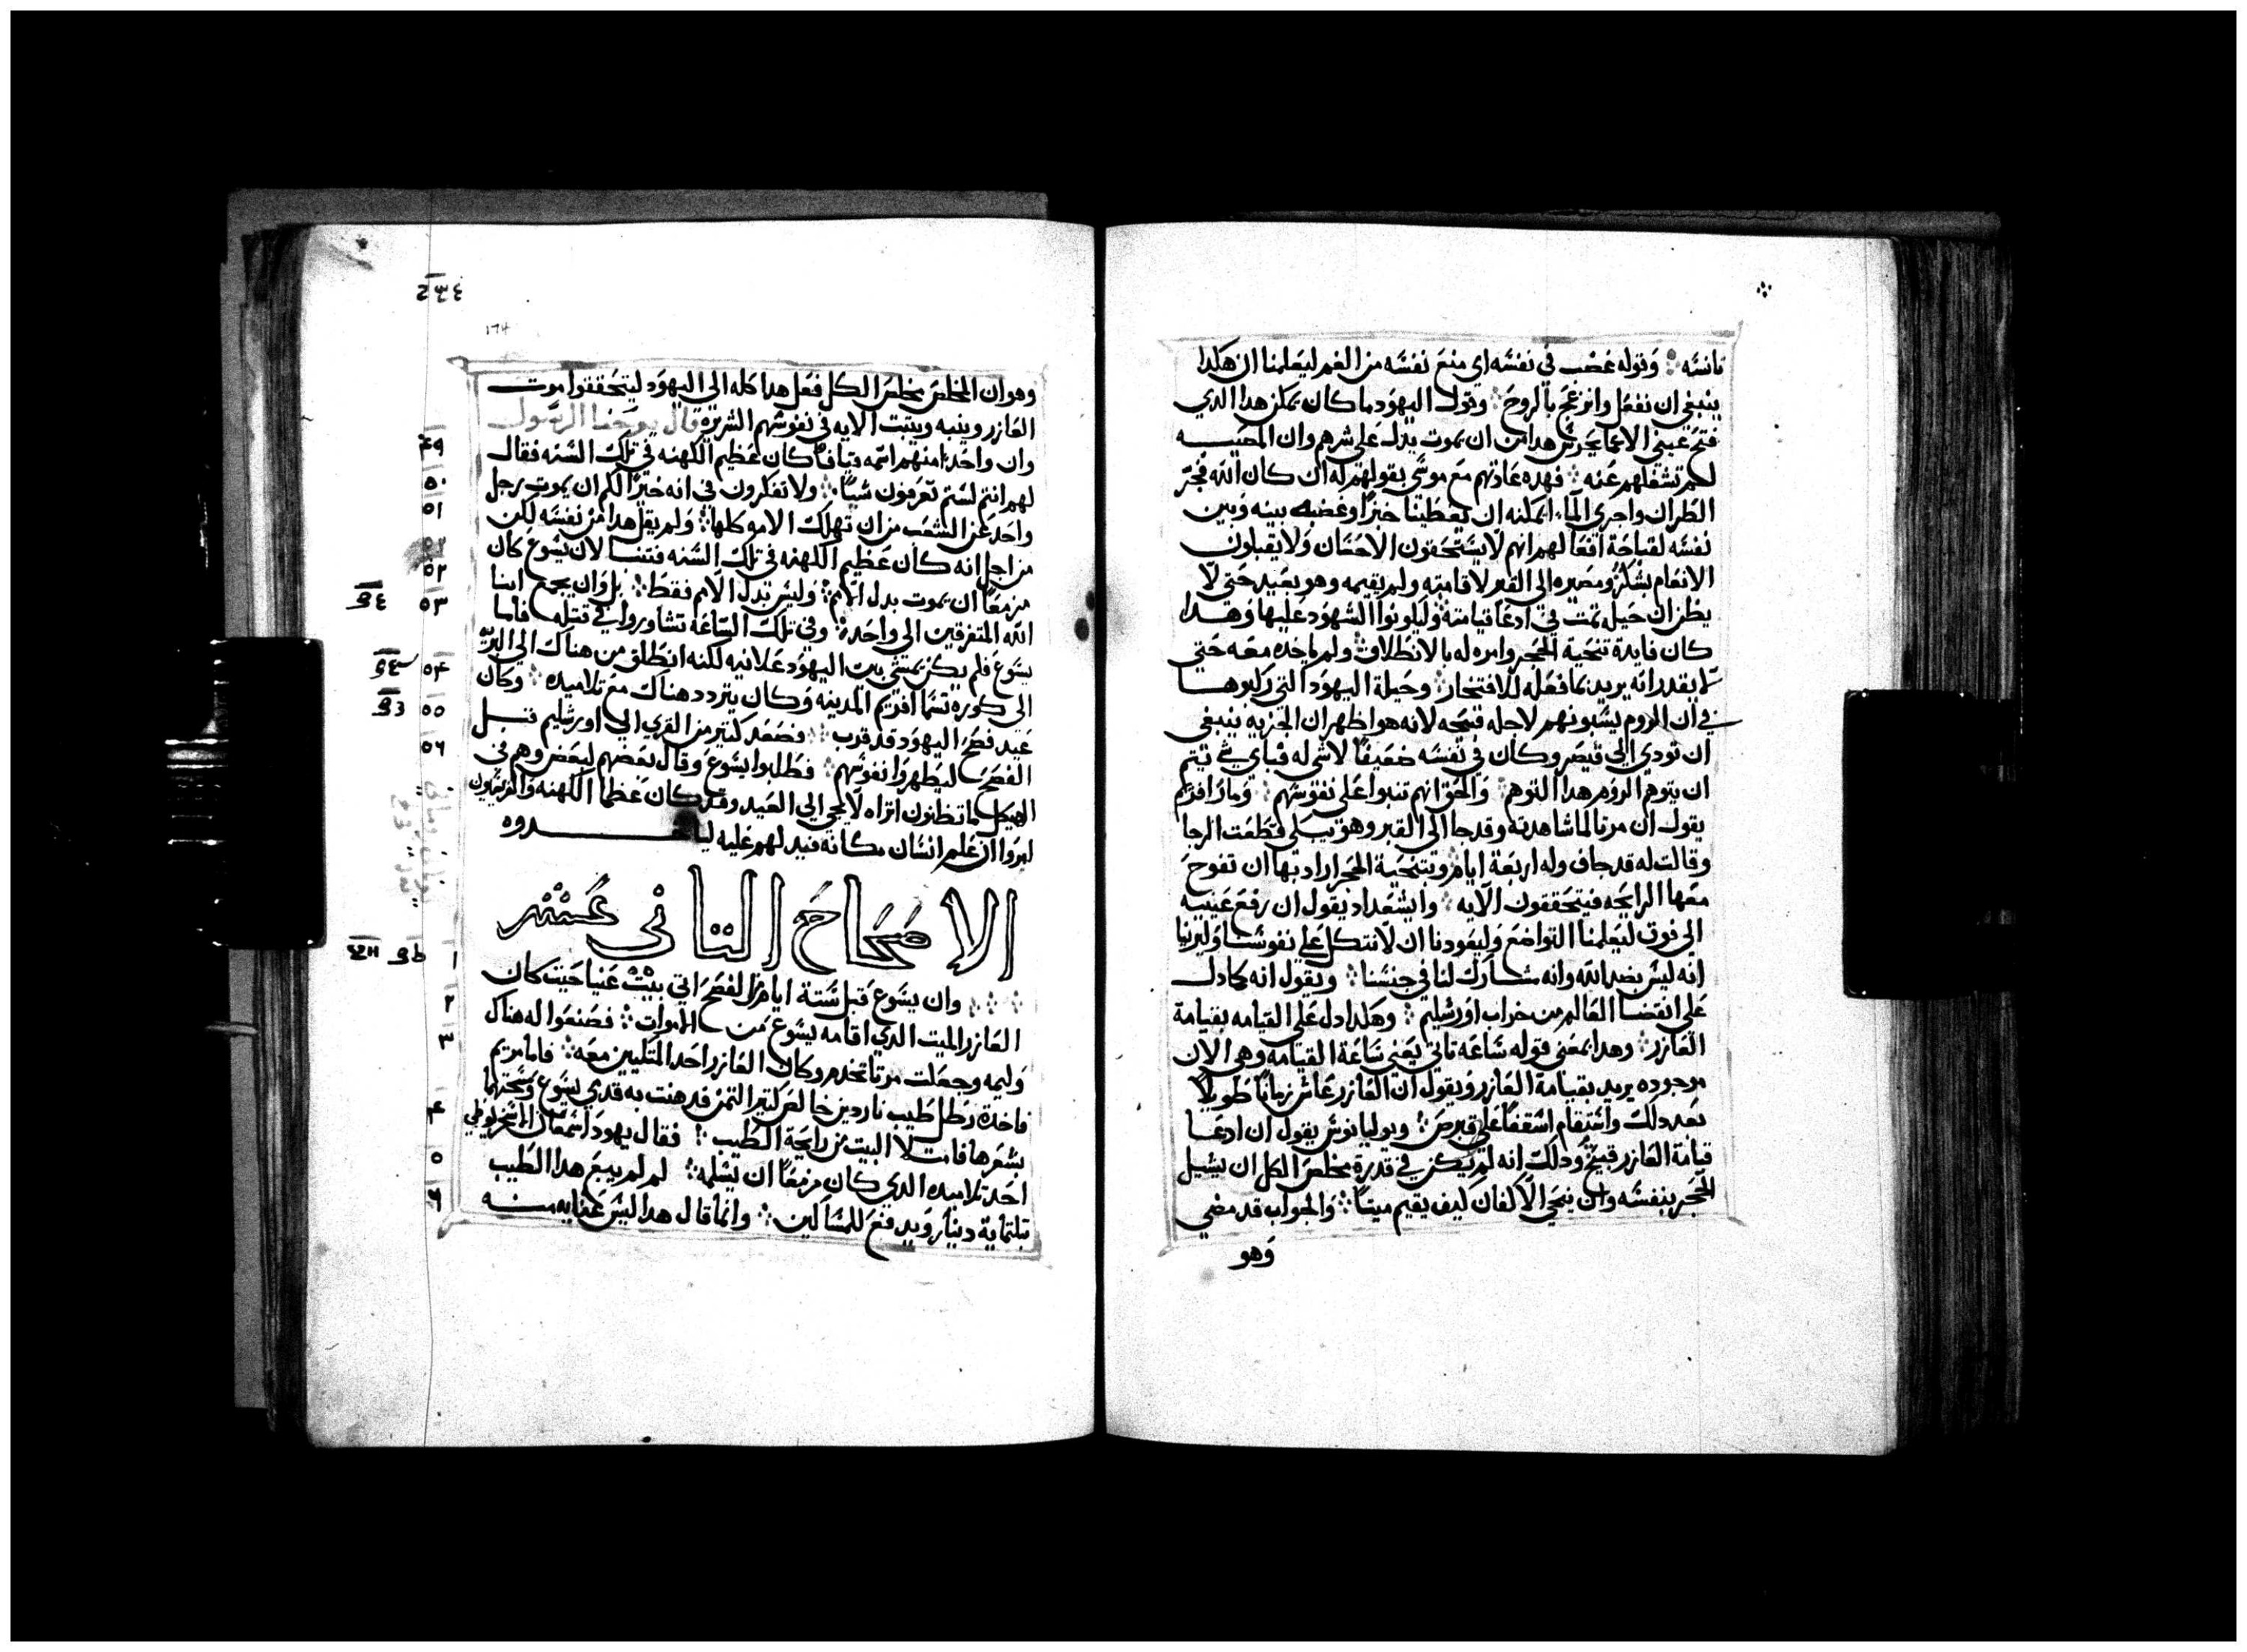 تانسه وقوله غضب في نفسه اي منع نفسه من الغم ليعلمنا ان هكدا
ينبغي ان نفعل وانزعج بالروح وقول اليهود ما كان يمكن هدا الدي
فتح عيني الاعما هدا من ان يموت يدل على شرهم وان المصيبه
لم تشغلهم عنه فهده عادتهم مع موسى بقولهم له ان كان الله فجر
الطران واجرى الماء ايمكنه ان يعطينا خبزا وغضبه بينه وبين
نفسه لقباحة افعالهم انهم لا يستحقون الاحسان ولا يقبلون
الانعام بشكر ومصيره الى القبر لاقامته ولم يقيمه وهو بعيد حتى لا
يظن ان حيله تمت في ادعا قيامته وليكونوا الشهود عليها وهدا
كان فايدة تنحية الحجر وامره له بالانطلاق ولم ياخده معه حتى
لا يقدر انه يريد بما فعله للافتخار وحيلة اليهود التي ركبوها
في ان الروم يسبونهم لاجله قبيحه لانه هو اظهر ان الجزيه ينبغي
ان تودي الى قيصر وكان في نفسه ضعيفا لا شي له فباي شي يتم
ان يتوهم الروم هدا التوهم والحق انهم تنبوا على نفوسهم ومار افريم
يقول ان مرتا لما شاهدته وقد جا الى القبر وهو يبكي قطعت الرجا
وقالت له قد جاف وله اربعة ايام وبتنحية الحجر اراد بها ان تفوح
معها الرايحه فيتحققون الايه وايشعداد يقول ان رفع عينيه
الى فوق ليعلمنا التواضع وليعودنا ان لا نتكل على نفوسنا وليرينا
انه ليس بضد الله وانه مشارك لنا في جنسنا ويقول انه كما دل
على انقضا العالم من خراب اورشليم وهكدا دل على القيامه بقيامة
العازر وهدا بمعنى قوله ساعه تاتي يعني ساعة القيامه وهي الان
موجوده يريد بقيامة العازر ويقول ان العازر عاش زمانا طويلا
بعد دلك واستقام اسقفا على قبرص ويوليانوس يقول ان ادعا
قيامة العازر قبيح ودلك انه لم يكن في قدرة مخلص الكل ان يشيل
الحجر بنفسه وان ينحي الاكفان كيف يقيم ميتا والجواب قد مضي
وهو
174
وهو ان المخلص مخلص الكل فعل هدا كله الى اليهود ليتحققوا موت
العازر وينبه ويثبت الايه في نفوسهم الشريره قال يوحنا الرسول
٤٩ وان واحدا منهم اسمه قيافا كان عظيم الكهنه في تلك السنه فقال
٥٠ لهم انتم لستم تعرفون شيا ولا تفكرون في انه خيرا لكم ان يموت رجل
٥١ واحد عن الشعب من ان تهلك الامه كلها ولم يقل هدا من نفسه لكن
من اجل انه كان عظيم الكهنه في تلك السنه فتنبا لان يسوع كان
٥٢ مزمعا ان يموت بدل الامم وليس بدل الامم فقط بل وان يجمع ابنا
٥٣ الله المتفرقين الى واحد وفي تلك الساعه تشاوروا في قتله فاما
٥٤ يسوع فلم يكن يمشي بين اليهود علانيه لكنه انطلق من هناك الى البريه
الى كوره تسما افريم المدينه وكان يتردد هناك مع تلاميده وكان
٥٥ عيد فصح اليهود قد قرب فصعد كتير من القرى الى اورشليم قبل
٥٦ الفصح ليطهروا نفوسهم فطلبوا يسوع وقال بعضهم لبعض وهم في
الهيكل ما تظنون اتراه لا يجي الى العيد وقد كان عظما الكهنه والفريسيون
امروا ان علم انسان مكانه فيدلهم عليه لياخدوه
الاصحاح التاني عشر
١ وان يسوع قبل ستة ايام من الفصح اتى بيت عنيا حيت كان
٢ العازر الميت الدي اقامه يسوع من الاموات فصنعوا له هناك
٣ وليمه وجعلت مرتا تخدم وكان العازر احد المتكيين معه فاما مريم
فاخدة رطل طيب ناردين خالص كتير التمن فدهنت به قدمي يسوع ومسحتهما
٤ بشعرها فامتلا البيت من رايحة الطيب فقال يهودا سمعان الاسخريوطي
٥ احد تلاميده الدي كان مزمعا ان يسلمه لم لم يبع هدا الطيب
٦ بتلتماية دينار ويدفع للمساكين وانما قال هدا ليس عنايه منه